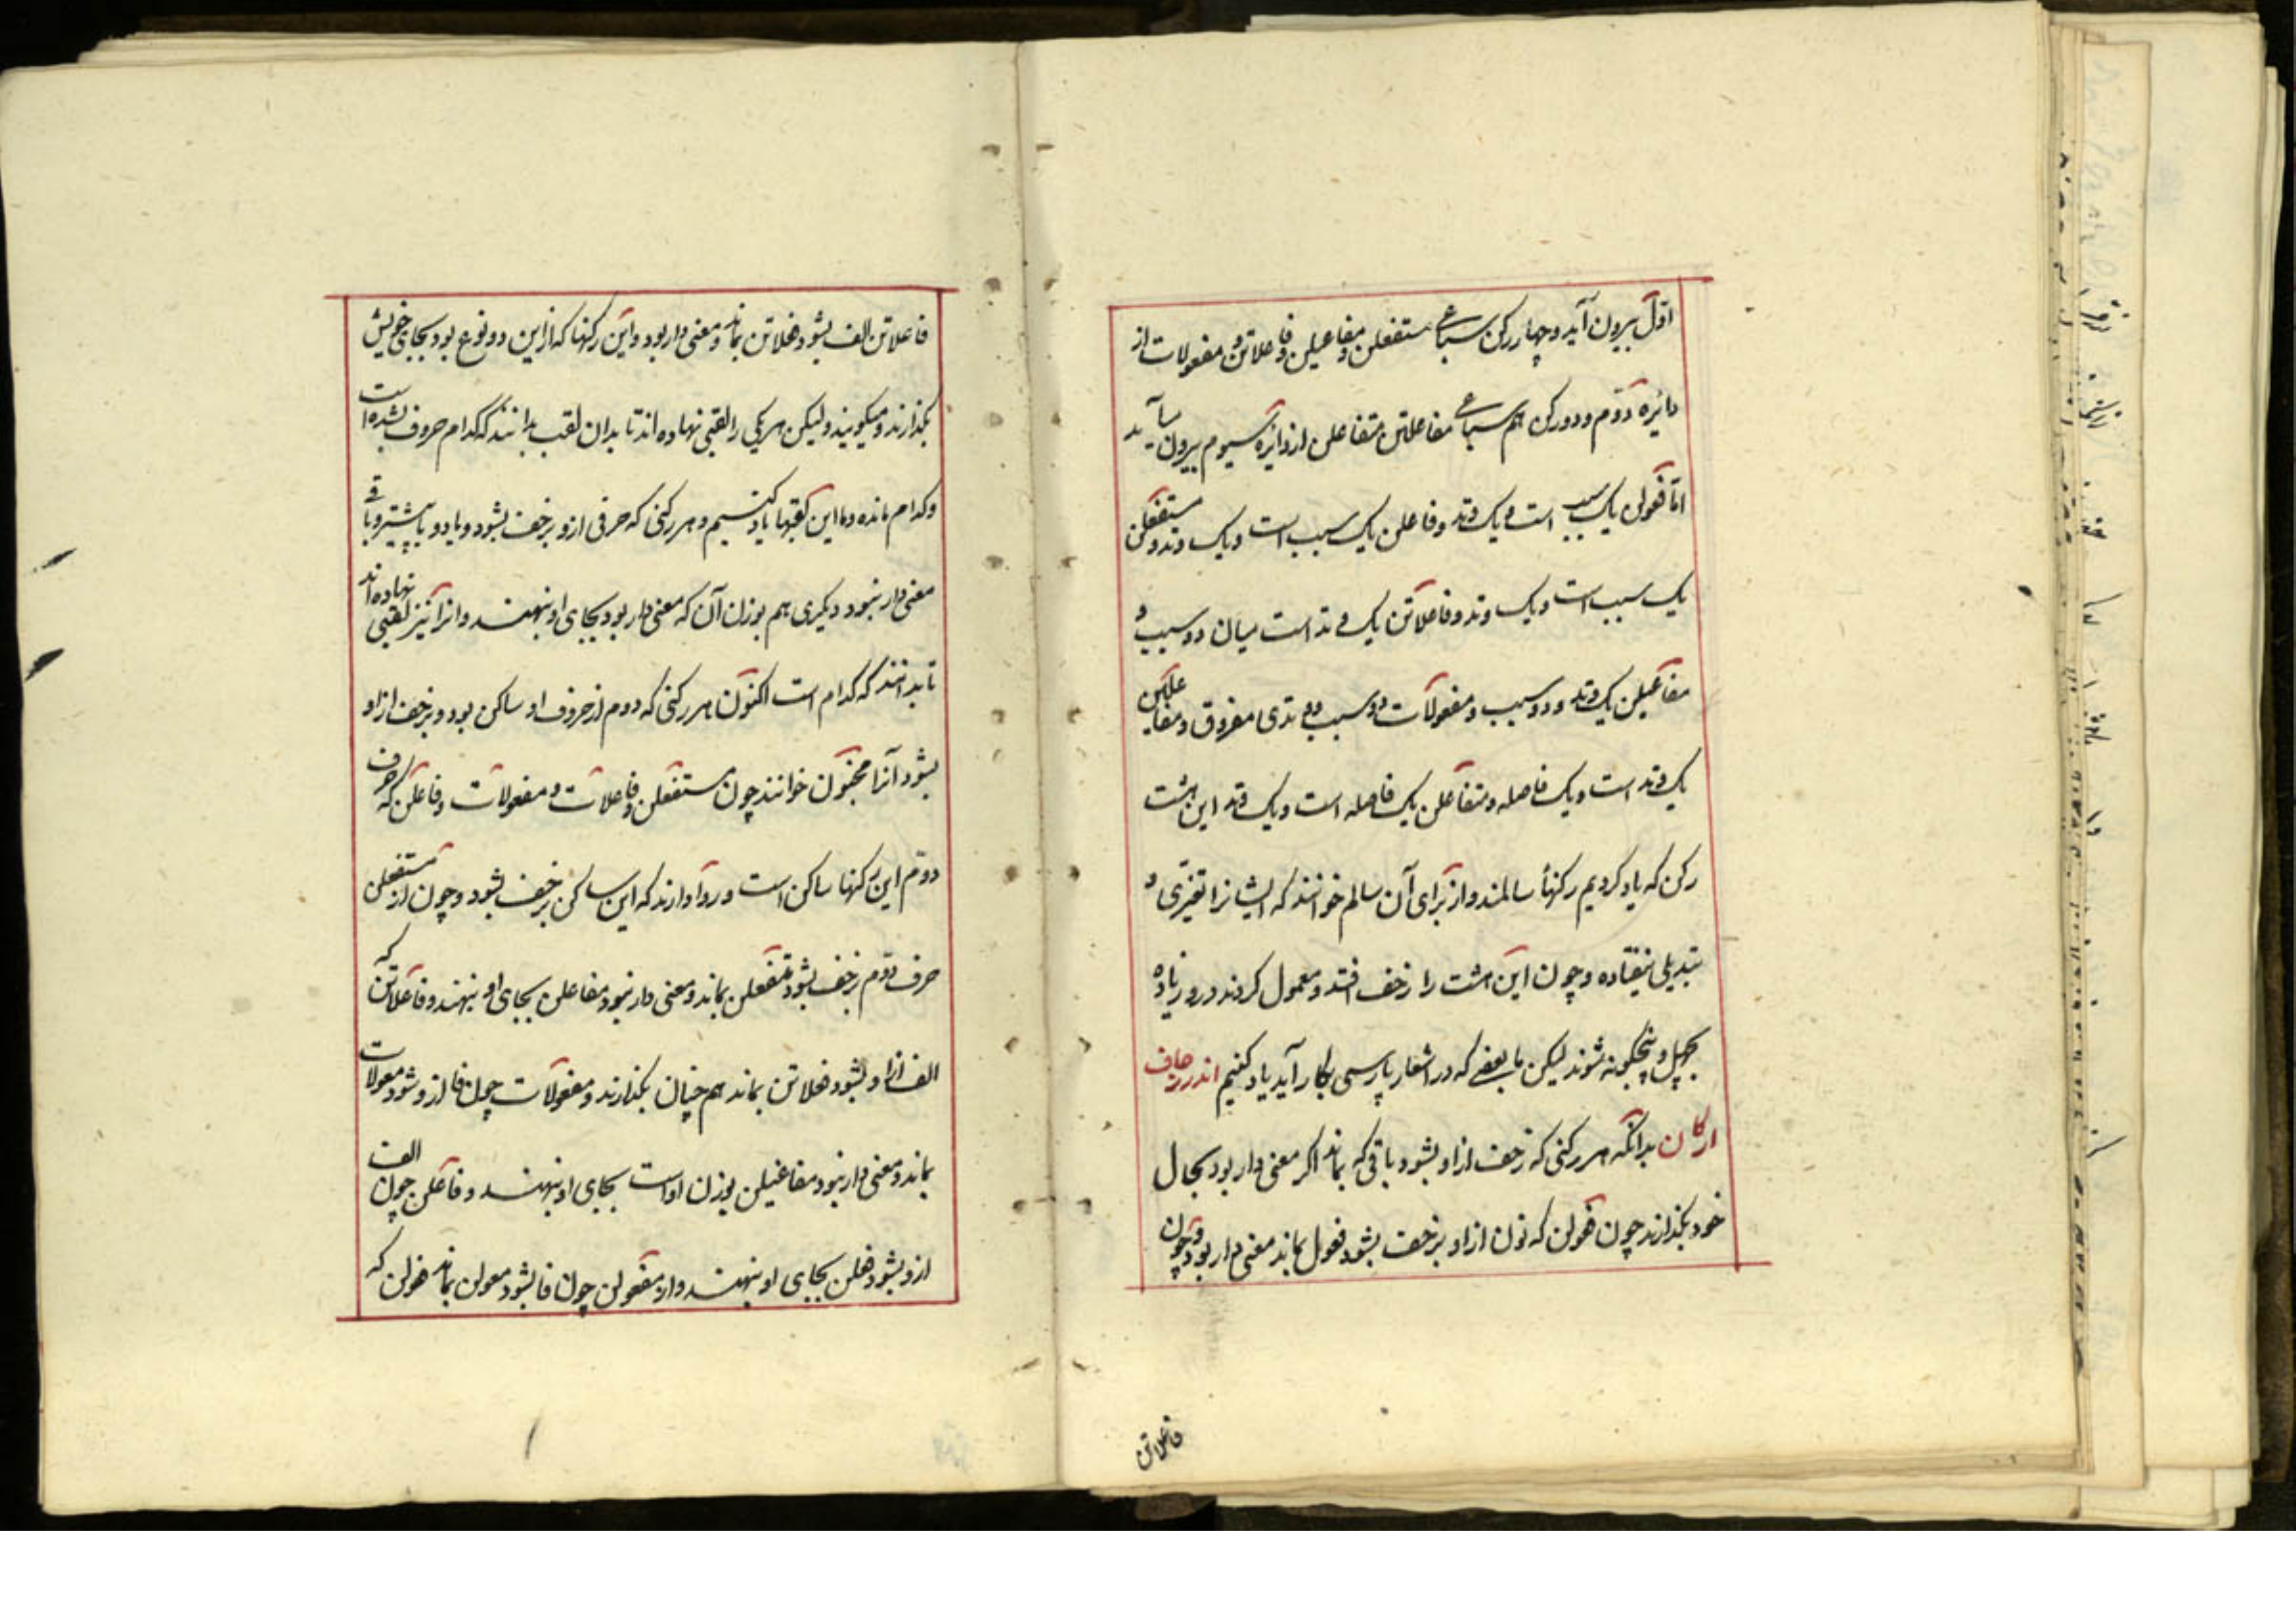 اول بیرون آید و چهار رکن سباعی مستفعلن و مفاعیلن و فاعلاتن و مفعولات از
دائره دوم و دو رکن هم سباعی مفاعلتن متفاعلن از دائره سیوم بیرون می آید
اما فعولن یک سبب است و یک وتد و فاعلن یک سبب است و یک وتد و مستفعلن
یک سبب است و یک وتد و فاعلاتن یک وتد است میان دو سبب و
مفاعیلن یک وتد و دو سبب و مفعولات دو سبب و وتدی مفروق و مفاعلتن
یک وتد است و یک فاصله و متفاعلن یک فاصله است و یک وتد این هشت
رکن که یاد کردیم رکنها سالمند و از برای آن سالم خوانند که ایشانرا تغیری و
تبدیلی نیفتاده و چون این هشت را زحف افتد و معمول کردند در و زیاده
بچهل و پنجگونه شوند لیکن ما بعضی که در اشعار پارسی بکار آید یاد کنیم اندر زحاف
ارکان بدانکه هر رکنی که زحف ازاو بشود باقی که بماند اکر معنی دار بود بحال
خود بکذارند چون فعولن که نون ازاو بزحف بشود فعول بماند معنی دار بود و چون
فاعلاتن
فاعلاتن الف بشود فعلاتن بماند و معنی دار بود و این رکنها که ازین دو نوع بود بجای خویش
بکذارند و میکویند و لیکن هر یکی را لقبی نهاده اند تا بدان لقب بدانند که کدام حروف بشده است
و کدام مانده و ما این لقبها یاد کنیم و هر رکنی که حرفی ازو بزحف بشود و یا دو یا بیشتر و باقی
معنی دار نبود دیکری هم بوزن آن که معنی دار بود بجای او بنهند و انرا نیز لقبی نهاده اند
تا بدانند که کدام است اکنون هر رکنی که دوم از حروف او ساکن بود و بزحف ازاو
بشود آنرا مخبون خوانند چون مستفعلن و فاعلات و مفعولات و فاعلن که حرف
دوم این رکنها ساکن است و روا دارند که این ساکن بزحف بشود و چون از مستفعلن
حرف دوم بزحف بشود متفعلن بماند و معنی دار نبود مفاعلن بجای او بنهند و فاعلاتن که
الف ازاو بشود فعلاتن بماند هم چنان بکذارند و مفعولات چون فا ازو شود معولات
بماند و معنی دار نبود مفاعیلن بوزن اواست بجای او بنهند و فاعلن چون الف
ازو بشود فعلن بجای او بنهند و از مفعولن چون فا بشود معولن بماند فعولن که